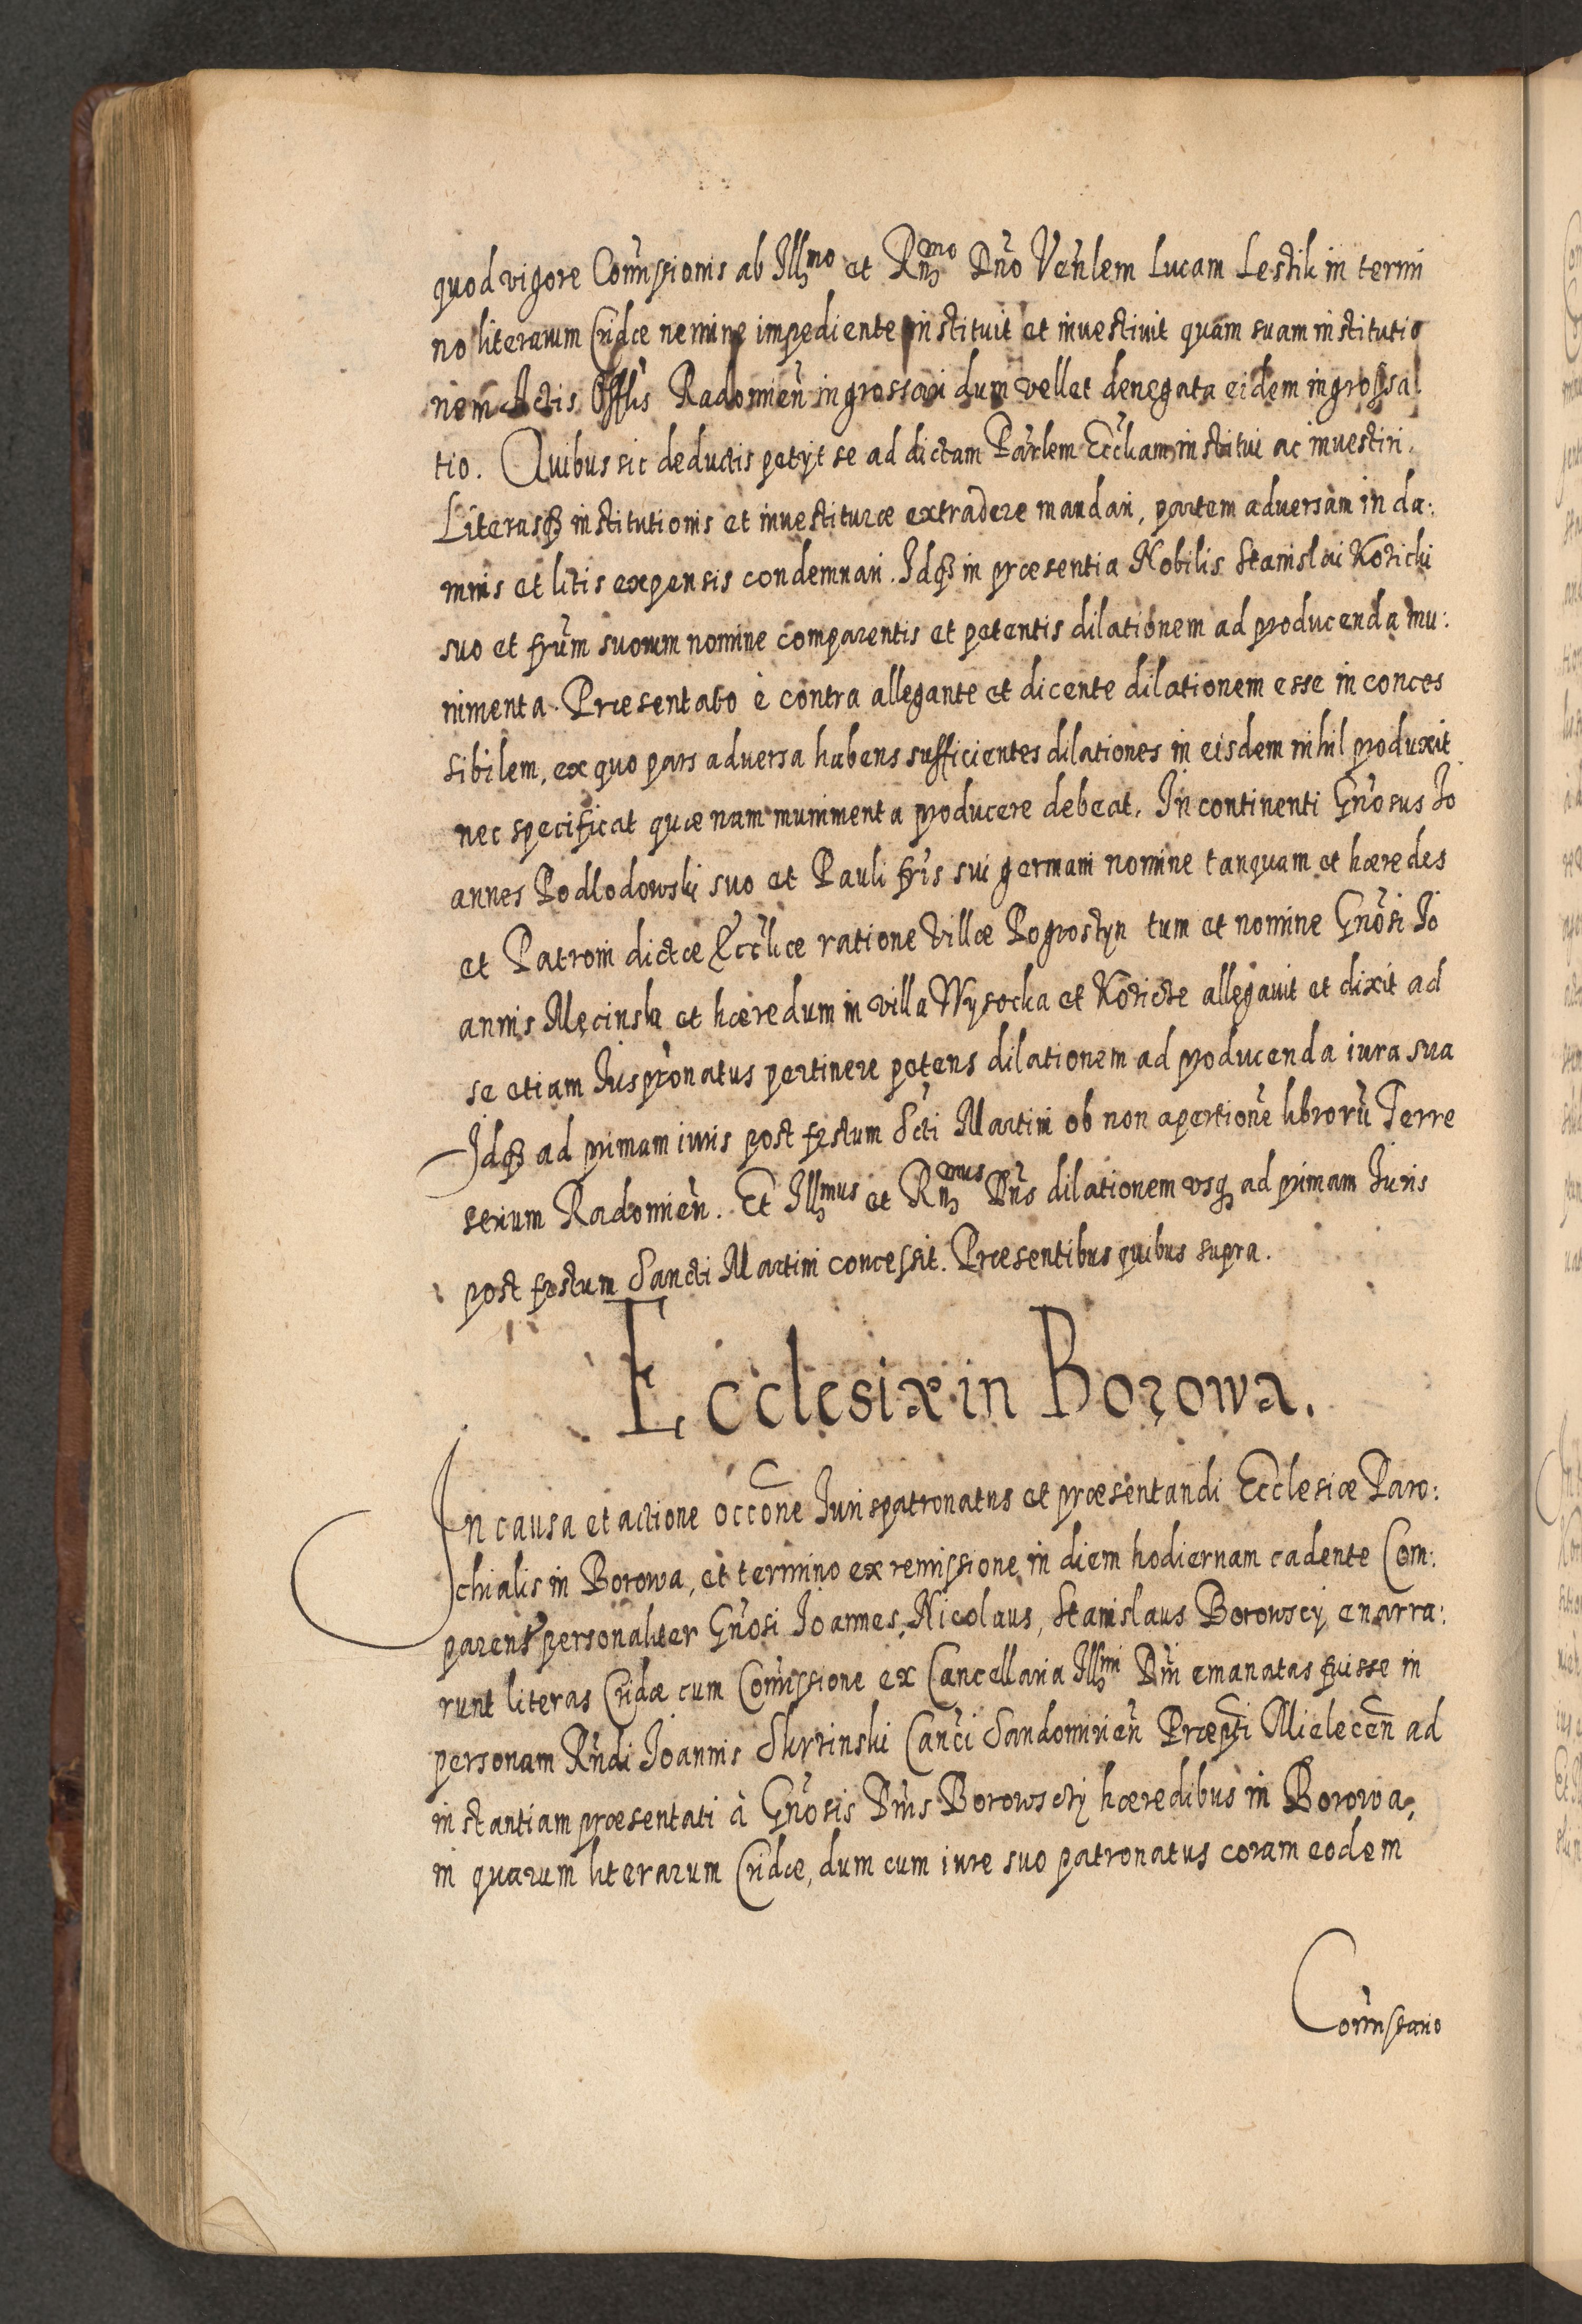 quod vigore Com̃issionis ab Ill͠mo et R͠nmo Dn͠o Ven͠lem Lucam Lestik in termi
no literarum Cridæ nemine impediente instituit et investiuit quam suam institutio
nem Actis Offl͠is Radomien͠ ingrossari dum vellet denegata eidem ingrossa
tio. Quibus sic deductis petijt se ad dictam Par͠lem Eccl͠iam institui ac investiri.
Literasq3 institutionis et investituræ extradere mandari, partem adversam in da:
mnis et litis expensis condemnari. Idq3 in præsentia Nobilis Stanislai Kozicki
suo et fr͠um suorum nomine comparentis et petentis dilationem ad producenda mu:
nimenta. Præsentato è contra allegante et dicente dilationem esse inconces
sibilem, ex quo pars adversa habens sufficientes dilationes in eisdem nihil produxit
nec specificat quænam munimenta producere debeat. In continenti Gn͠osus Jo
annes Podlodowski suo et Pauli fr͠is sui germani nomine tanquam et hæredes
et Patroni dictæ Eccl͠iæ ratione Villæ Pogrostyn tum et nomine Gn͠osi Jo
annis Męcinski et hæredum in villa Wysocka et Kozicze allegauit et dixit ad
se etiam Juspr͠onatus pertinere petens dilationem ad producenda iura sua
Idq3 ad primam iuris post festum Sc͠ti Martini ob non apertion͠e libror͠u Terre
serium Radomien͠. Et Ill͠mus et R͠nmus Dn͠s dilationem vsq3 ad primam Juris
post festum Sancti Martini concessit. Præsentibus quibus supra.
Ecclesiæ in Borowa.
In causa et actione occ͠one Jurispatronatus et præsentandi Ecclesiæ Paro:
chialis in Borowa, et termino ex remissione in diem hodiernam cadente Com:
parens personaliter Gn͠osi Joannes, Nicolaus, Stanislaus Borowscy enarra:
runt literas Cridæ cum Com̃issione ex Cancellaria Ill͠mi Dn͠i emanatas fuisse in
personam Rn͠di Joannis Skrzinski Can͠ci Sandomirien͠ Præp͠ti Mielecen͠ ad
instantiam præsentati à Gn͠osis Dn͠is Borowscÿ hæredibus in Borowa,
in quarum literarum Cridæ, dum cum iure suo patronatus coram eodem
Com̃issario